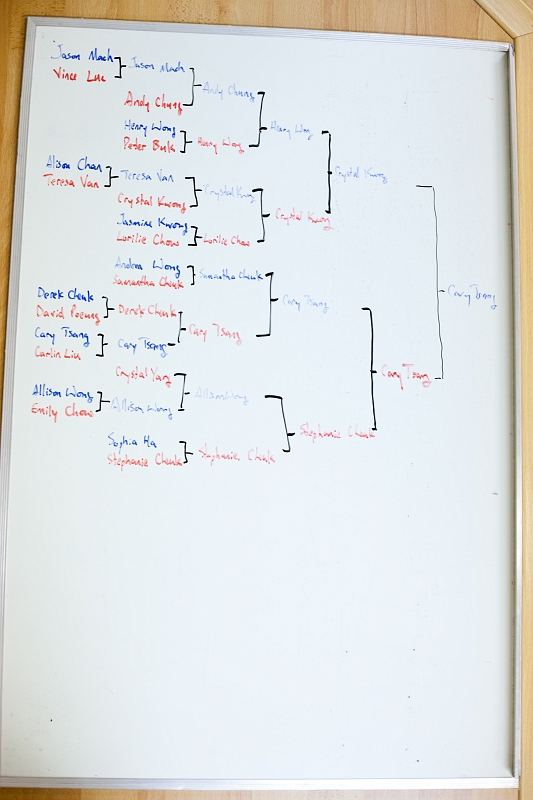 Jason Mach
Vince Luc
Jason Mach
Andy Chung
Andy Chung
Henry Wong
Peter Buk
Henry Wong
Henry Wong
Alison Chan
Teresa Van
Teresa Van
Crystal Kwong
Crystal Kwong
Jasmine Kwong
Lorilie Chow
Lorilie Chow
Crystal Kwong
Crystal Kwong
Andrea Wong
Samantha Cheuk
Samantha Cheuk
Derek Cheuk
David Poeung
Derek Cheuk
Cary Tsang
Carlin Liu
Cary Tsang
Cary Tsang
Cary Tsang
Crystal Yang
Allison Wong
Emily Chow
Allison Wong
Allison Wong
Sophia Ha
Stephanie Cheuk
Stephanie Cheuk
Stephanie Cheuk
Cary Tsang
Cary Tsang